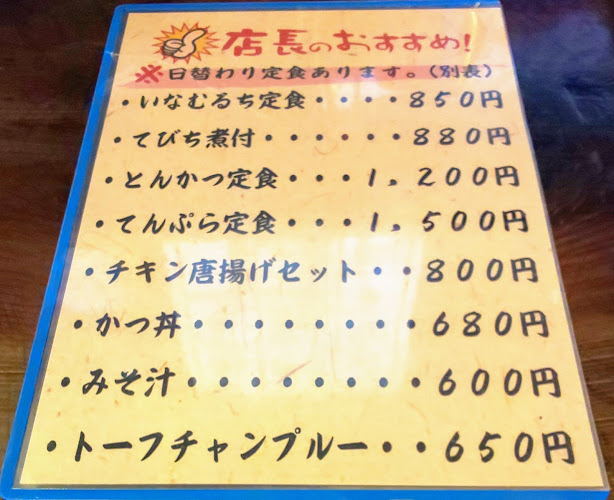 店長のおすすめ!
※日替わり定食あります。(別表)
・いなむるち定食・・・・850円
・てびち煮付・・・・・・880円
・とんかつ定食・・・1,200円
・てんぷら定食・・・1,500円
・チキン唐揚げセット・・800円
・かつ丼・・・・・・・・680円
・みそ汁・・・・・・・・600円
・トーフチャンプルー・・650円